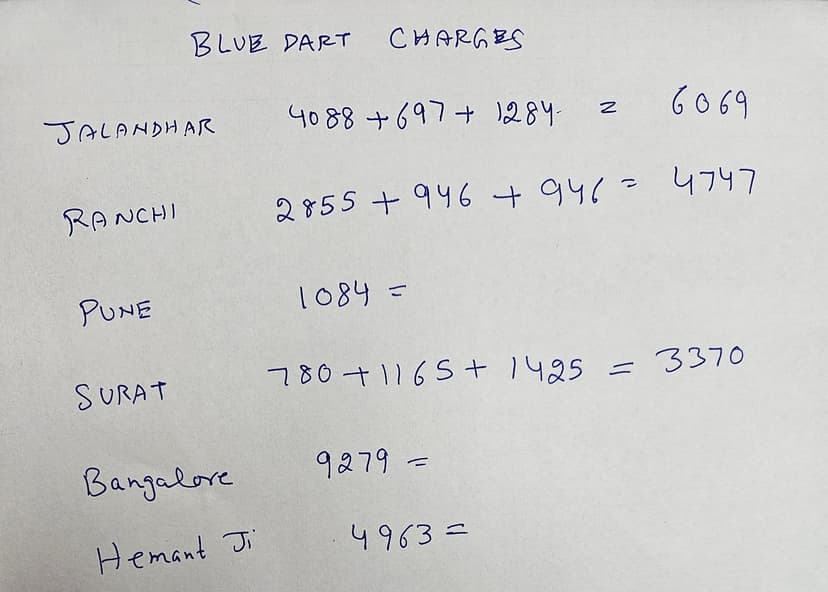 BLUE DART CHARGES
JALANDHAR 4088 + 697 + 1284 = 6069
RANCHI 2855 + 946 + 946 = 4747
PUNE 1084 =
SURAT 780 + 1165 + 1425 = 3370
Bangalore 9279 =
Hemant Ji 4963 =